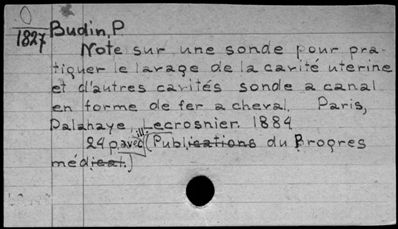 1827
Budin, P
Note sur une sonde pour pra-
tiquer le lavage de la cavité uterine
et d'autres cavités sonde a canal
en forme de fer a cheval. Paris,
Dalahaye, Lecrosnier. 1884
ill.
24 p. avec (Publications du Progres
médical.)